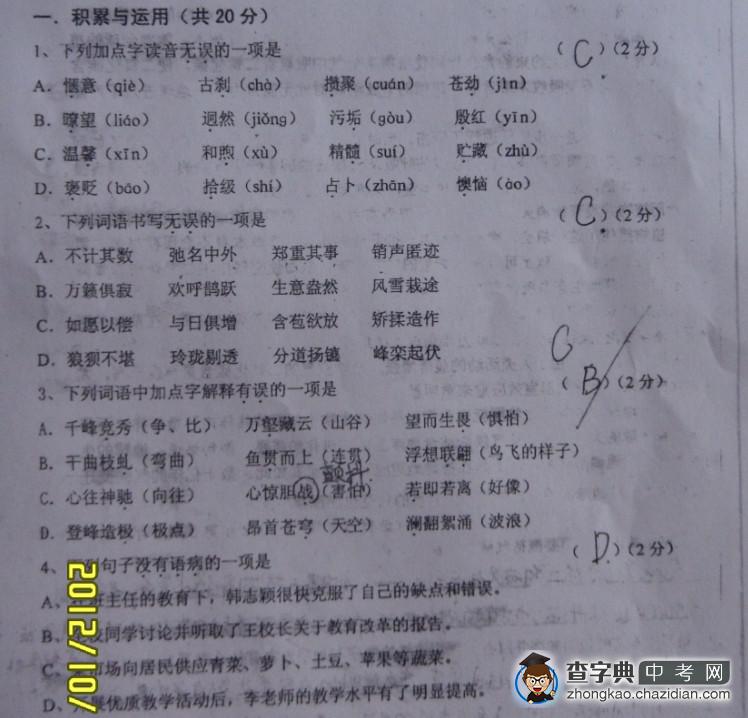 一、积累与运用（共20分）
1、下列加点字读音无误的一项是 （ C ）（2分）
A．惬意（qiè） 古刹（chà） 攒聚（cuán） 苍劲（jìn）
B．瞭望（liáo） 迥然（jiǒng） 污垢（gòu） 殷红（yīn）
C．温馨（xīn） 和煦（xù） 精髓（suí） 贮藏（zhù）
D．褒贬（bāo） 拾级（shí） 占卜（zhān） 懊恼（ào）
2、下列词语书写无误的一项是 （ C ）（2分）
A．不计其数 弛名中外 郑重其事 销声匿迹
B．万籁俱寂 欢呼鹊跃 生意盎然 风雪栽途
C．如愿以偿 与日俱增 含苞欲放 矫揉造作
D．狼狈不堪 玲珑剔透 分道扬镳 峰栾起伏
C
3、下列词语中加点字解释有误的一项是 （ B ）（2分）
A．千峰竞秀（争、比） 万壑藏云（山谷） 望而生畏（惧怕）
B．干曲枝虬（弯曲） 鱼贯而上（连贯） 浮想联翩（鸟飞的样子）
颤抖
C．心往神驰（向往） 心惊胆战（害怕） 若即若离（好像）
D．登峰造极（极点） 昂首苍穹（天空） 澜翻絮涌（波浪）
4、列句子没有语病的一项是 （ D ）（2分）
A、班主任的教育下，韩志颖很快克服了自己的缺点和错误。
B、校同学讨论并听取了王校长关于教育改革的报告。
C、市场向居民供应青菜、萝卜、土豆、苹果等蔬菜。
D、展优质教学活动后，李老师的教学水平有了明显提高。
2012/10/
查字典中考网
zhongkao.chazidian.com